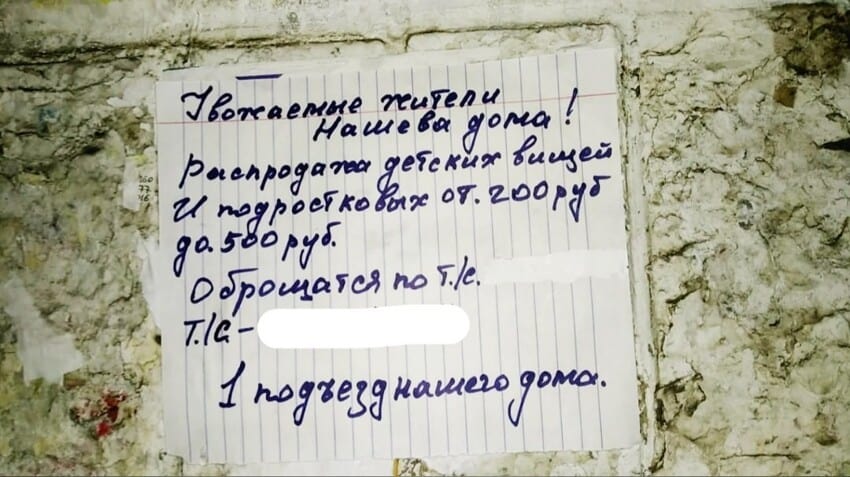 Уважаемые жители
Нашева дома!
Распродажа детских вищей
И подростковых от. 200 руб
до. 500 руб.
Оброщатся по Т./с.
Т./с. –
1 подъезд нашего дома.